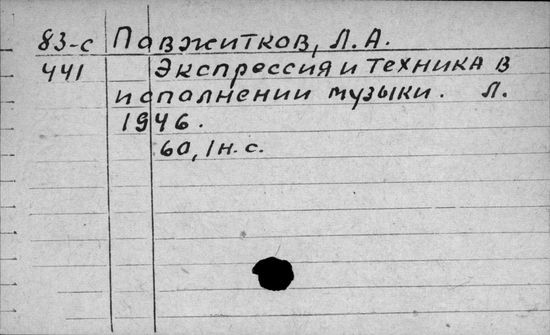 83-с Павжитков, Л.А.
441 Экспрессия и техника в
исполнении музыки. Л.
1946.
60, 1н. с.